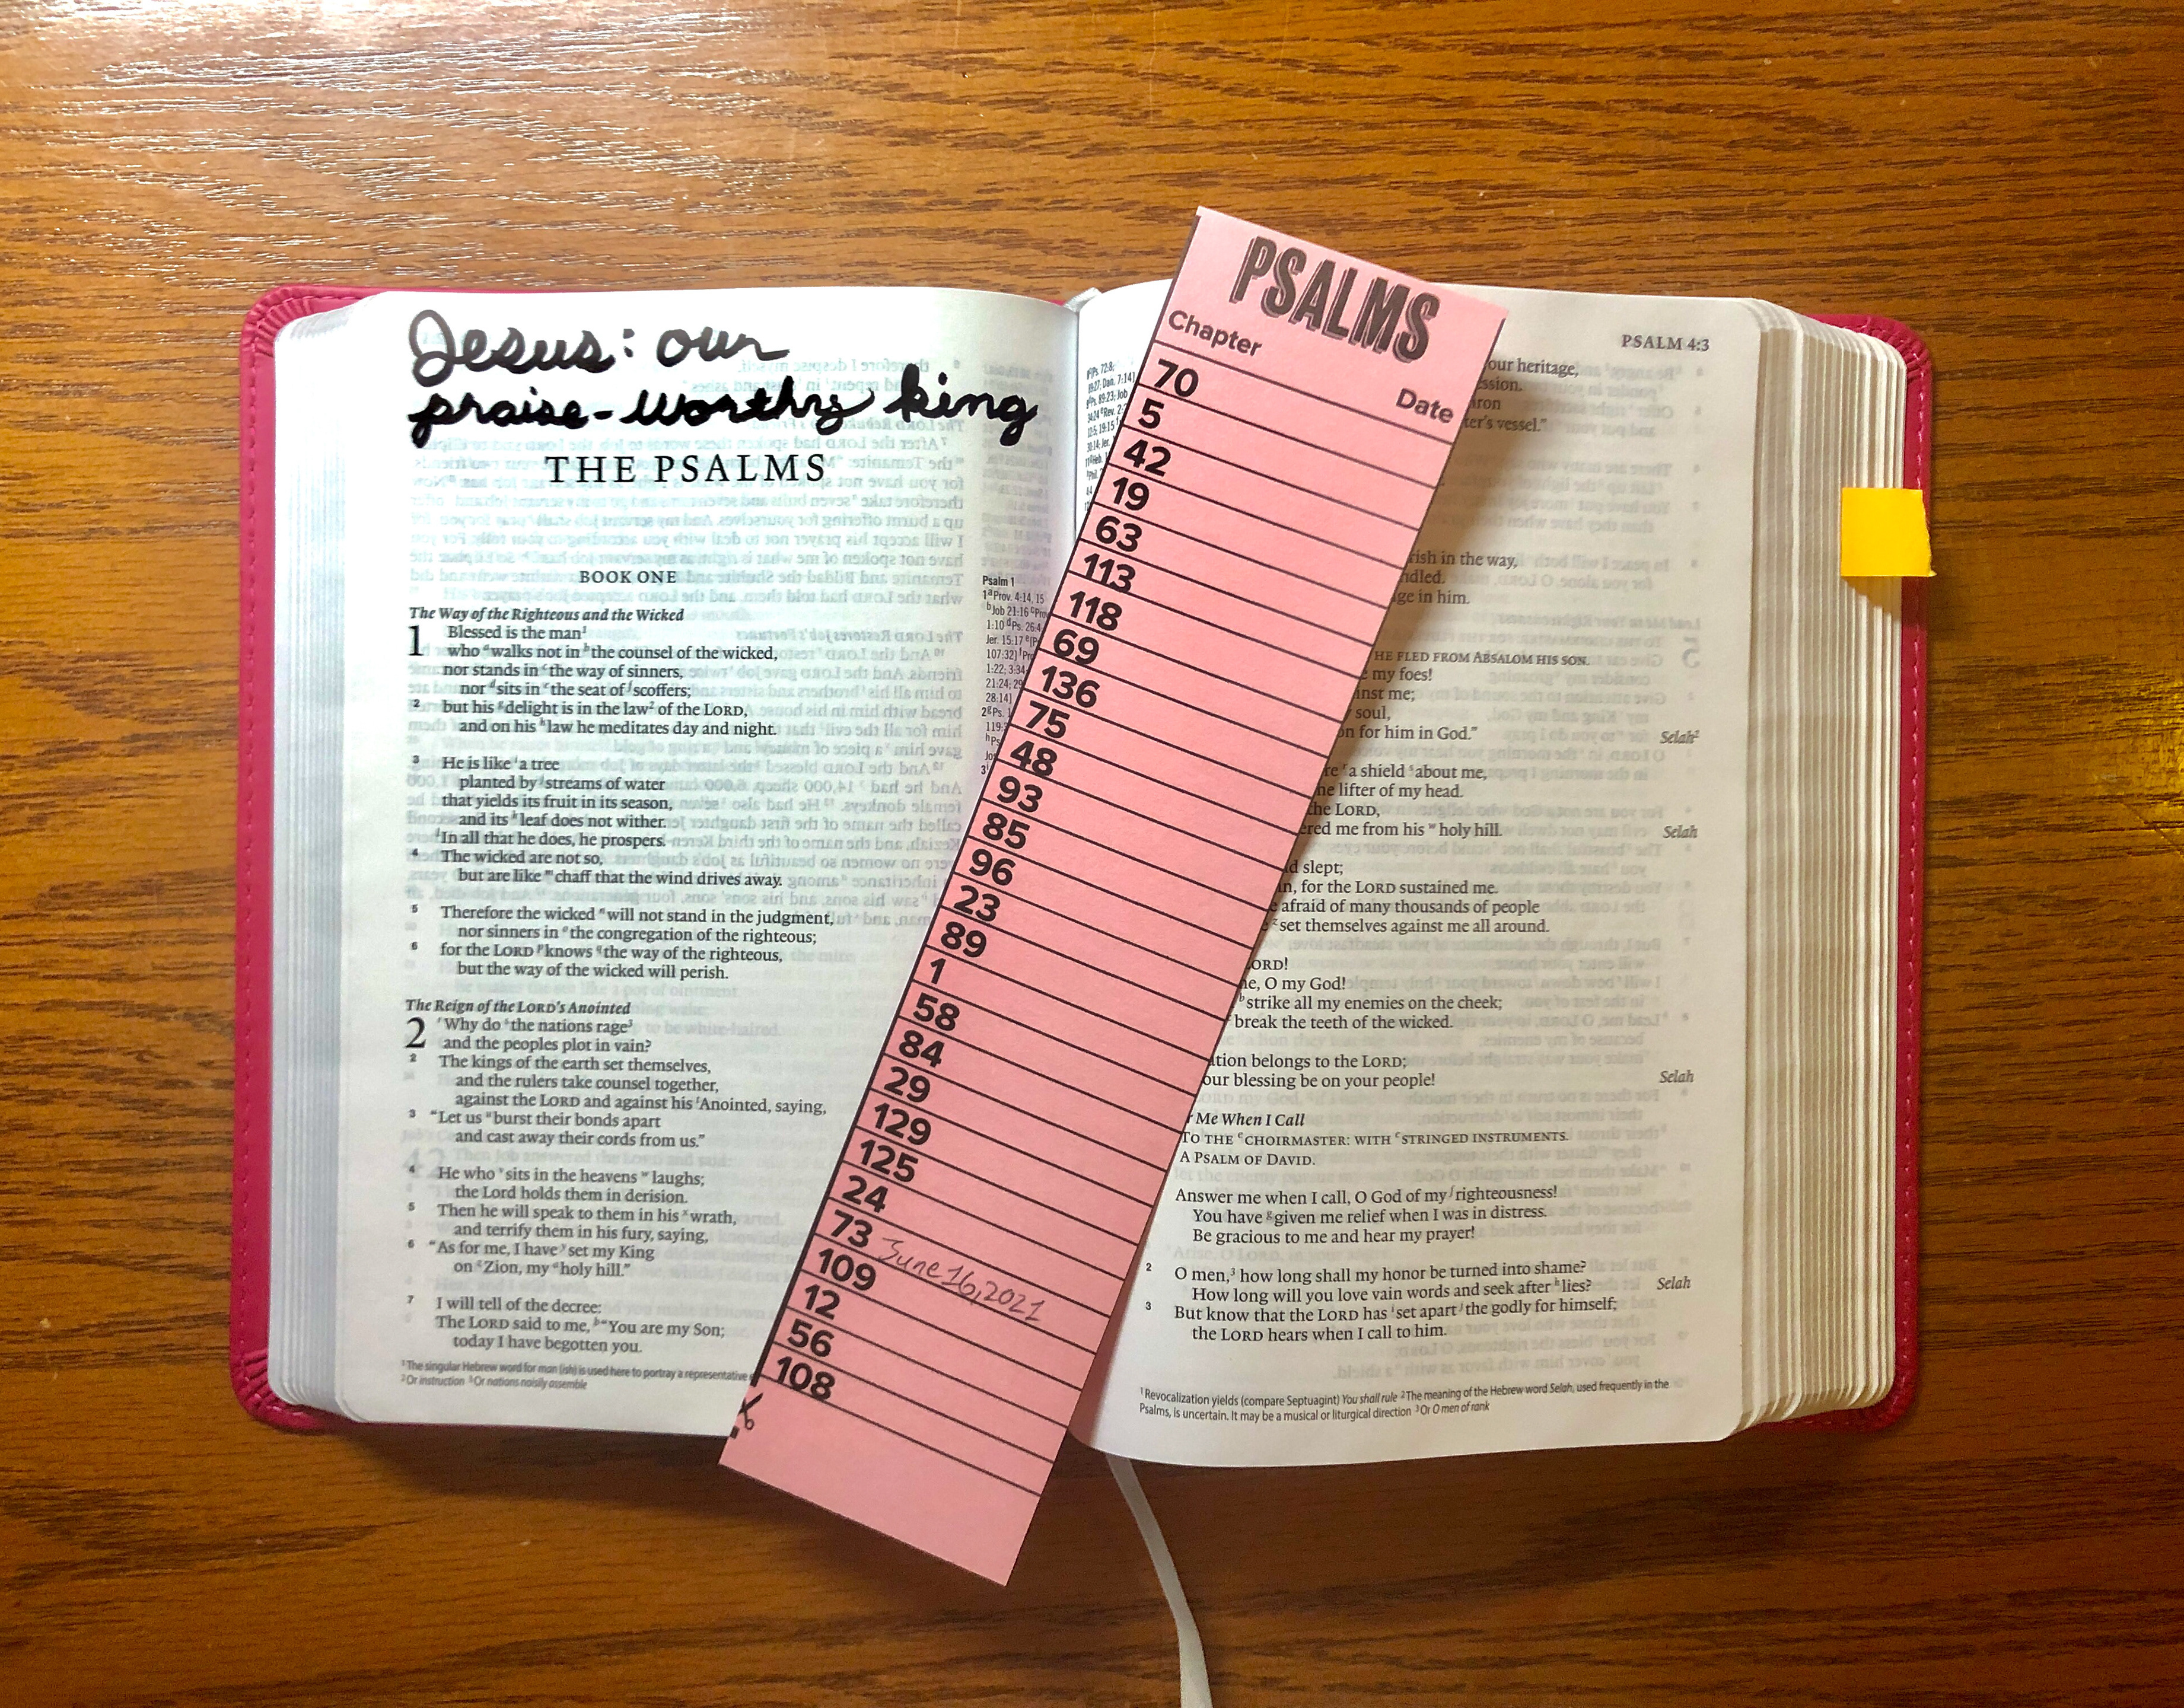 Jesus: our
praise-worthy king
THE PSALMS
BOOK ONE
The Way of the Righteous and the Wicked
1 Blessed is the man¹
who ᵃwalks not in ᵇthe counsel of the wicked,
nor stands in ᶜthe way of sinners,
nor ᵈsits in ᵉthe seat of ᶠscoffers;
² but his ᵍdelight is in the law² of the LORD,
and on his ʰlaw he meditates day and night.
³ He is like ⁱa tree
planted by ʲstreams of water
that yields its fruit in its season,
and its ᵏleaf does not wither.
ˡIn all that he does, he prospers.
⁴ The wicked are not so,
but are like ᵐchaff that the wind drives away.
⁵ Therefore the wicked ⁿwill not stand in the judgment,
nor sinners in ᵒthe congregation of the righteous;
⁶ for the LORD ᵖknows ᑫthe way of the righteous,
but the way of the wicked will perish.
The Reign of the LORD's Anointed
2 ʳWhy do ˢthe nations rage³
and the peoples plot in vain?
² The kings of the earth set themselves,
and the rulers take counsel together,
against the LORD and against his ᵗAnointed, saying,
³ “Let us ᵘburst their bonds apart
and cast away their cords from us.”
⁴ He who ᵛsits in the heavens ʷlaughs;
the Lord holds them in derision.
⁵ Then he will speak to them in his ˣwrath,
and terrify them in his fury, saying,
⁶ “As for me, I have ʸset my King
on ᶻZion, my ᵃholy hill.”
⁷ I will tell of the decree:
The LORD said to me, ᵇ“You are my Son;
today I have begotten you.
¹The singular Hebrew word for man (ish) is used here to portray a representative
²Or instruction ³Or nations noisily assemble
Psalm 1
1ᵃProv. 4:14, 15
ᵇJob 21:16
1:10 ᵈPs. 26:4
Jer. 15:17
107:32)
1:22; 3:34
21:24; 29
28:14]
2ᵍPs. 1
PSALMS
Chapter
Date
70
5
42
19
63
113
118
69
136
75
48
93
85
96
23
89
1
58
84
29
129
125
24
73 June 16, 2021
109
12
56
108
PSALM 4:3
our heritage,
ssion.
iron
ter's vessel.”
rish in the way,
ndled.
ge in him.
HE FLED FROM ABSALOM HIS SON.
my foes!
inst me;
soul,
on for him in God.” Selah²
re ʳa shield ˢabout me,
he lifter of my head.
the LORD,
ered me from his ʷholy hill. Selah
d slept;
in, for the LORD sustained me.
afraid of many thousands of people
ᶻset themselves against me all around.
ORD!
me, O my God!
ᵇstrike all my enemies on the cheek;
break the teeth of the wicked.
ation belongs to the LORD;
our blessing be on your people! Selah
r Me When I Call
TO THE ᶜCHOIRMASTER: WITH ᶜSTRINGED INSTRUMENTS.
A PSALM OF DAVID.
Answer me when I call, O God of my ᶠrighteousness!
You have ᵍgiven me relief when I was in distress.
Be gracious to me and hear my prayer!
² O men,³ how long shall my honor be turned into shame?
How long will you love vain words and seek after ʰlies? Selah
³ But know that the LORD has ⁱset apart ʲthe godly for himself;
the LORD hears when I call to him.
¹Revocalization yields (compare Septuagint) You shall rule ²The meaning of the Hebrew word Selah, used frequently in the
Psalms, is uncertain. It may be a musical or liturgical direction ³Or O men of rank